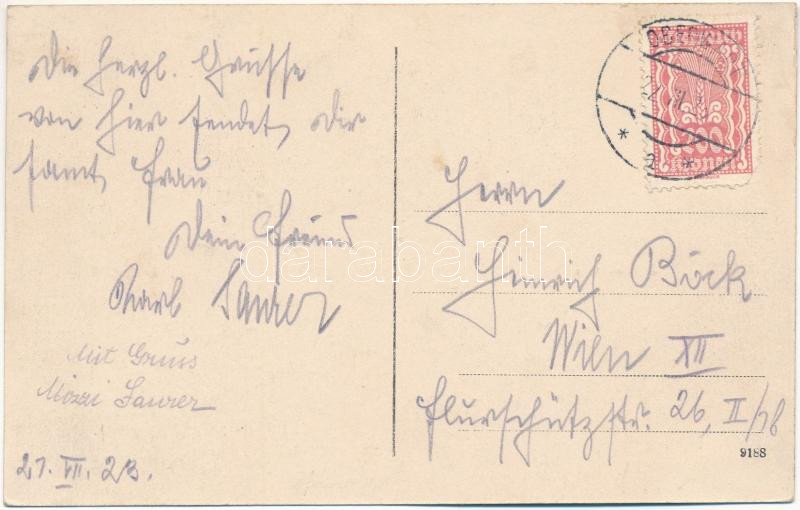 Die herzl. Grüsse
von hier sendet Dir
samt Frau
Dein Freund
Karl Saurer
Mit Gruss
Mizzi Saurer
21. VII. 23.
200
Kronen
Herrn
Heinrich Böck
Wien XII
Flurschützstr. 26, II/18
9188
darabanth